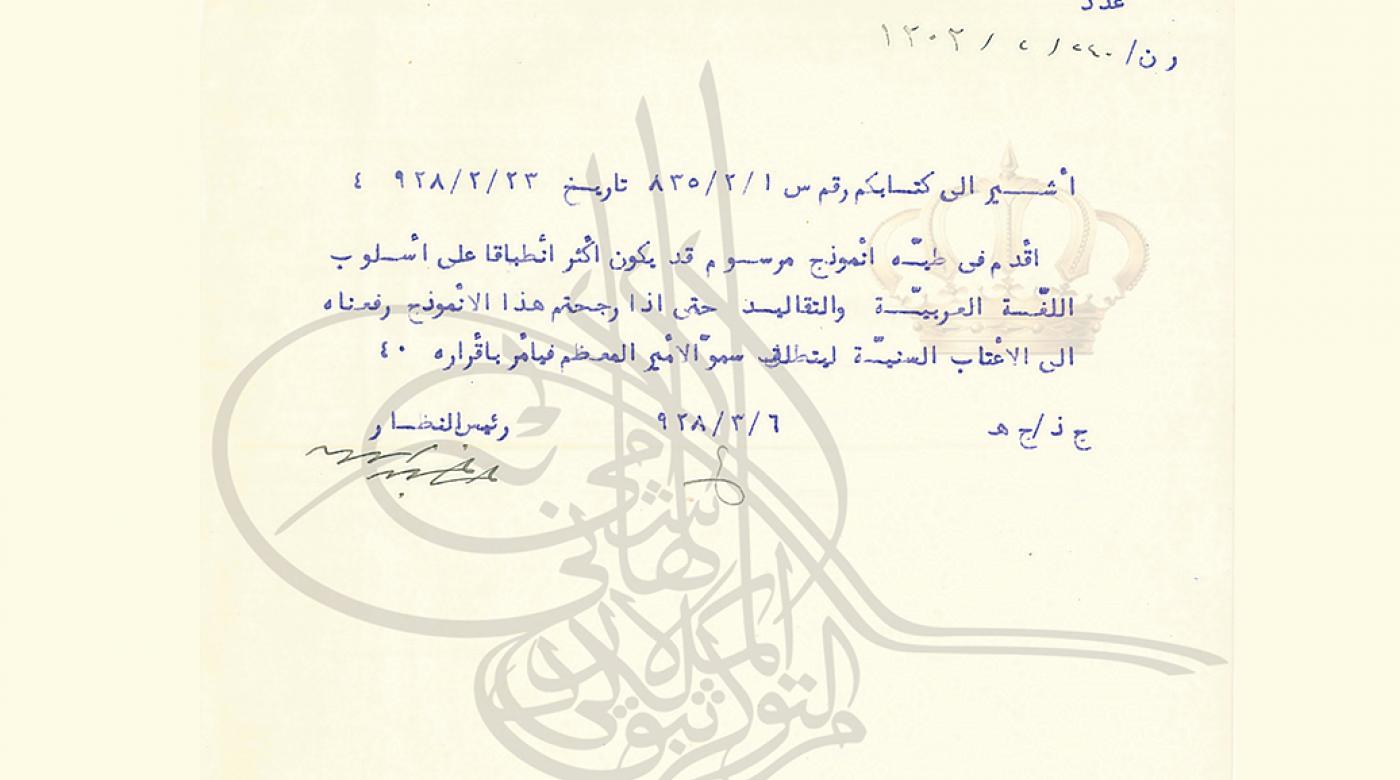 عدد
ر ن/٢٤٠ / ٢ / ١٣٠٢
أشير الى كتابكم رقم س ٨٣٥/٢/١ تاريخ ٩٢٨/٢/٢٣ ٤
اقدم فى طيّه انموذج مرسوم قد يكون اكثر انطباقا على أسلوب
اللغّة العربيّة والتقاليد حتى اذا رجحتم هذا الانموذج رفعناه
الى الاعتاب السنيّة ليتطلف سموّ الامير المعظم فيأمر باقراره ٤٠
ج ذ/ج هـ ٩٢٨/٣/٦ رئيس النظار